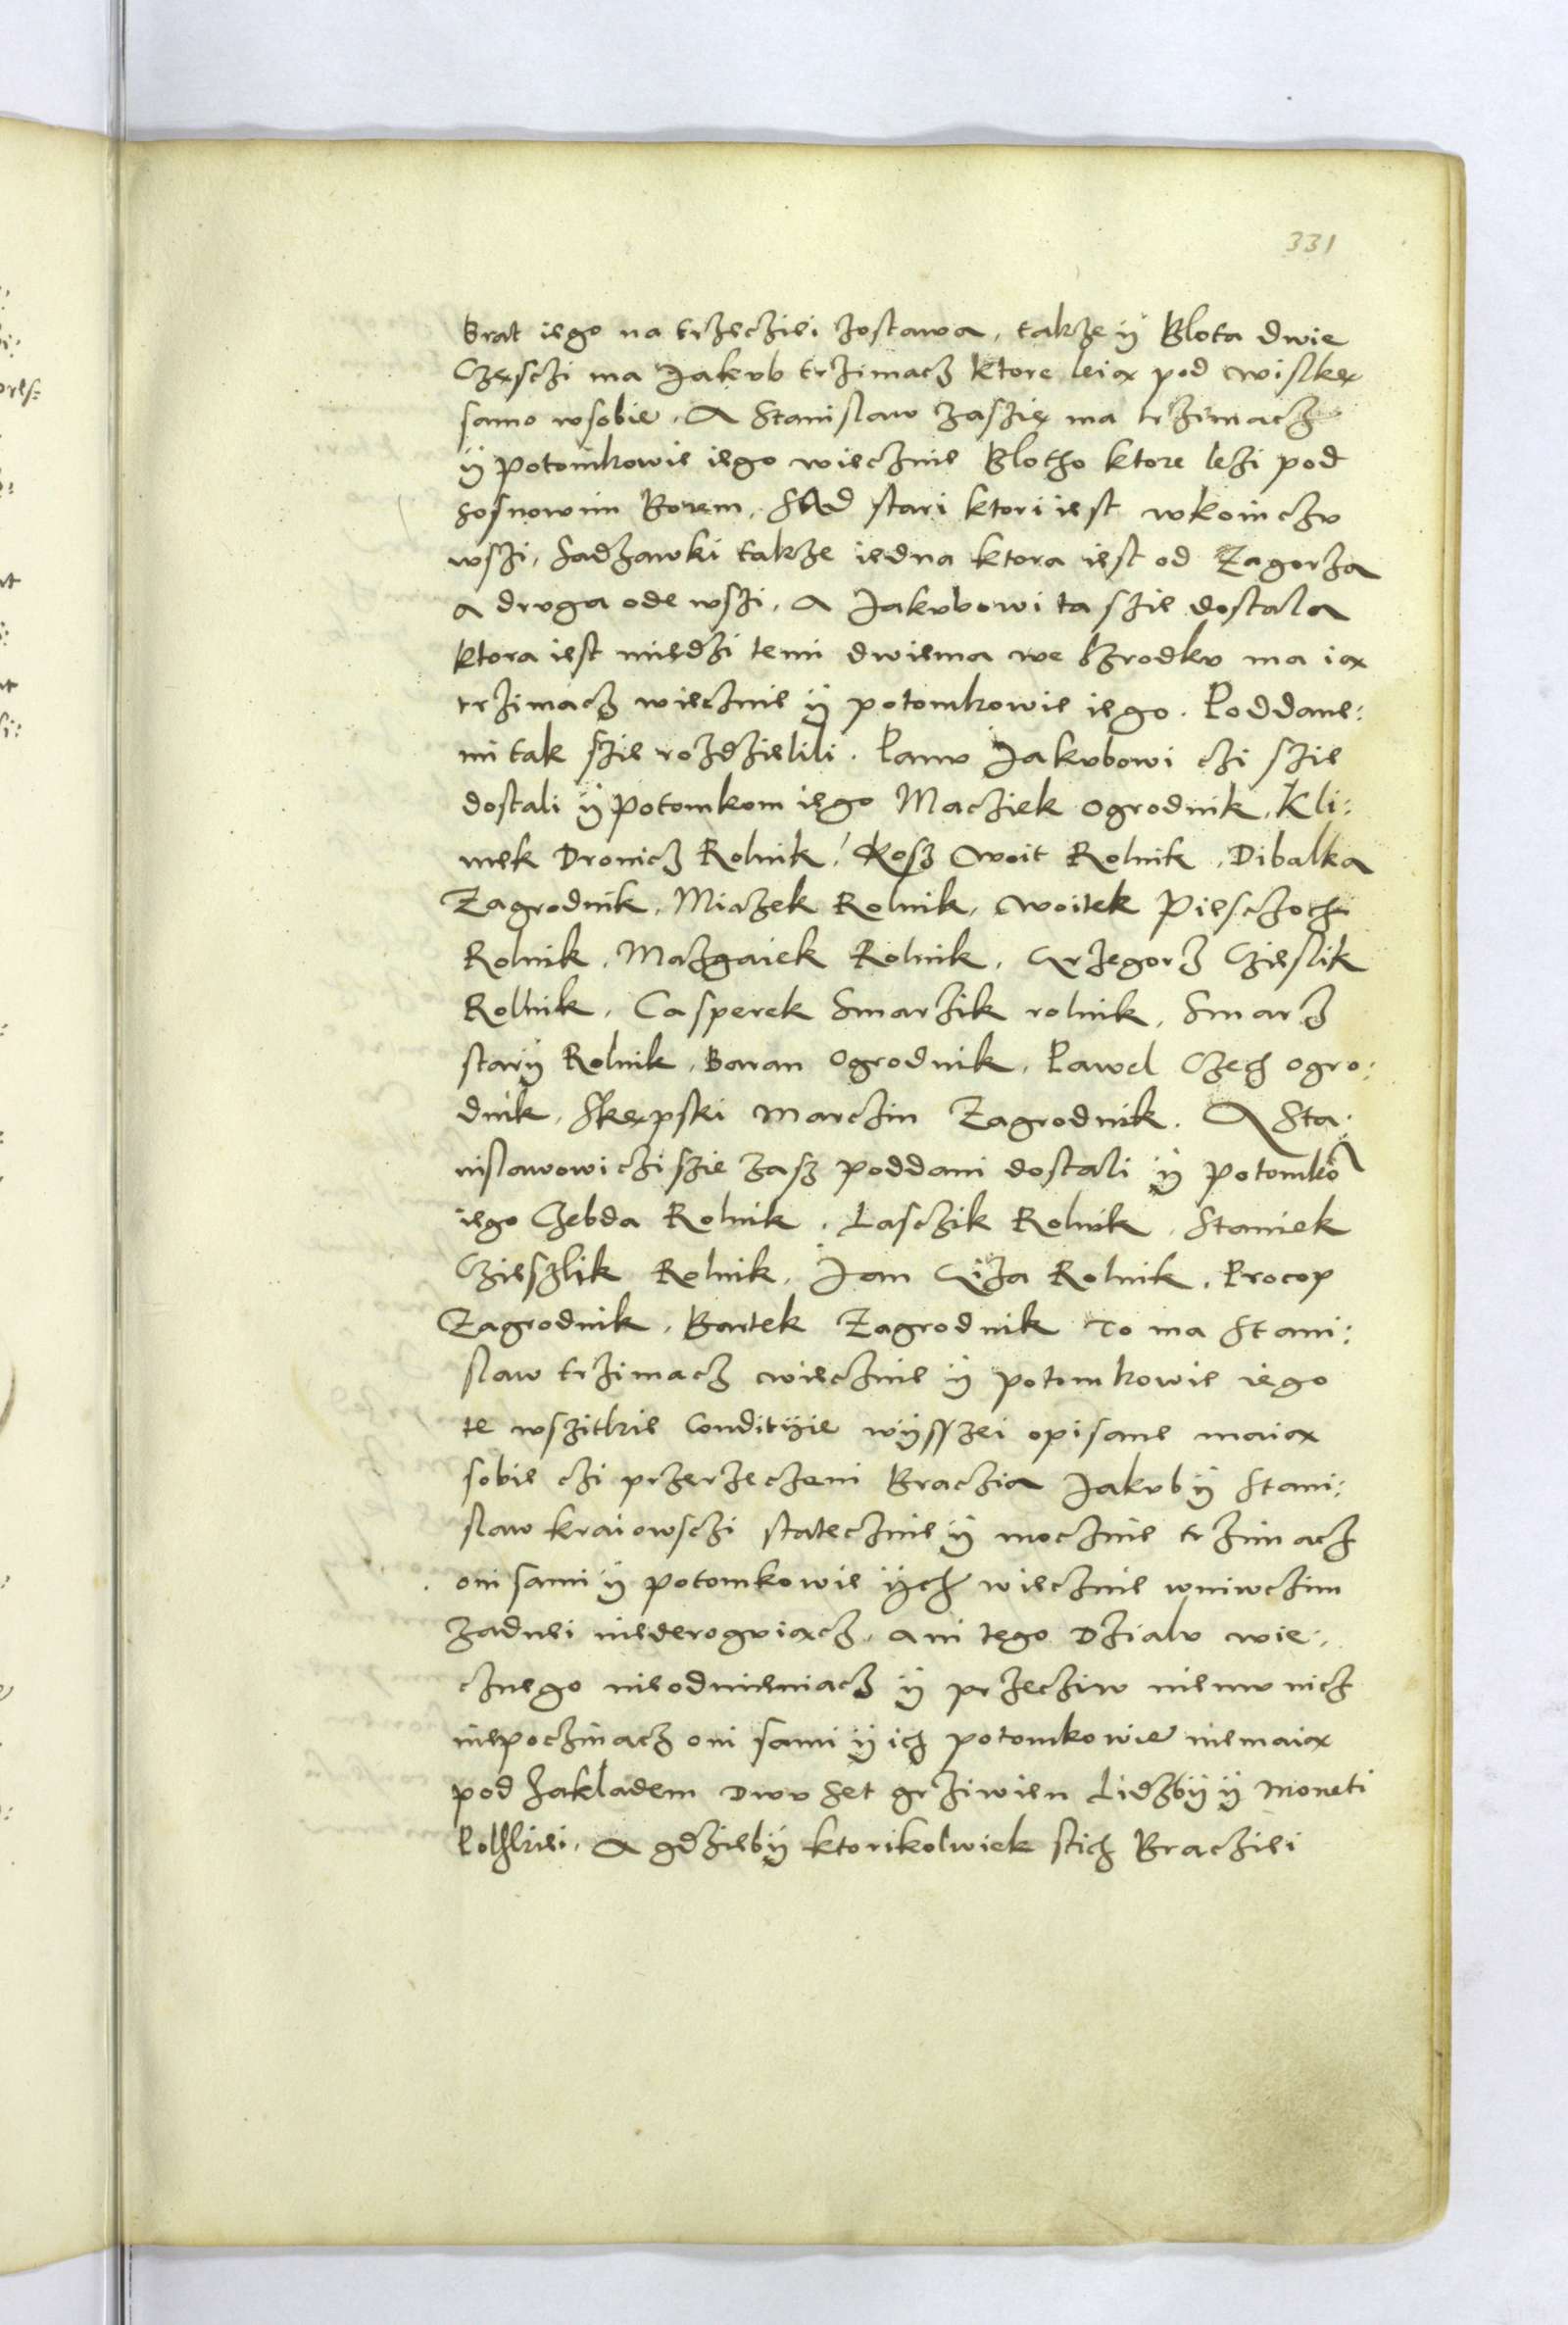 331
brat iego na trzecziei zostawa, takze ÿ Blota dwie
Częsczi ma Jakvb trzimacz ktore leią pod Wislkę
samo wsobie. A Stanislaw zaszię ma trzimacz
ÿ potomkowie iego wiecznie Blotho ktore lezi pod
Sosnowim Borem, SAd stari ktori iest wkoinczv
wszi, Sadzawki takze iedna ktora iest od Zagorza
a drvga ode wszi, A Jakvbowi ta szie dostala
ktora iest miedzi temi dwiema we szrodkv ma ią
trzimacz wiecznie ÿ potomkowie iego. Poddane:
mi tak szie rozdzielili. Panv Jakvbowi czi szie
dostali ÿ Potomkom iego Macziek Ogrodnik, Kli:
mek Dronicz Rolnik, Kosz Woit Rolnik, Dibalka
Zagrodnik, Miczek Rolnik, Woitek Piesczoch
Rolnik, Mazgaiek Rolnik, Grzegorz Czieslik
Rolnik, Casperek Smarzik rolnik, Smarz
starÿ Rolnik, Baran Ogrodnik, Pawel Czech Ogro:
dnik, Skępski Marczin Zagrodnik. A Sta:
nislawowi czi szie zasz poddani dostali ÿ Potomkō
iego Czebda Rolnik, Lasczik Rolnik, Staniek
Czieszlik Rolnik, Jan Giza Rolnik, Procop
Zagrodnik, Bartek Zagrodnik To ma Stani:
slaw trzimacz wiecznie ÿ potomkowie iego
te wszitkie Conditÿie wÿsszei opisane maią
sobie czi przerzeczeni Braczia Jakvb ÿ Stani:
slaw kraiowsczi statecznie ÿ mocznie trzimacz
oni sami ÿ potomkowie ÿch wiecznie wniwczim
zadnei niederogviącz, ani tego Dzialv wie:
cznego nieodmieniacz ÿ przecziw niemv nicz
niepoczinacz oni sami ÿ ich potomkowie niemaią
pod Zakladem Dwv Set grziwien Lidzbÿ ÿ Moneti
Polszkiei, A gdziebÿ ktorikolwiek stich Bracziei